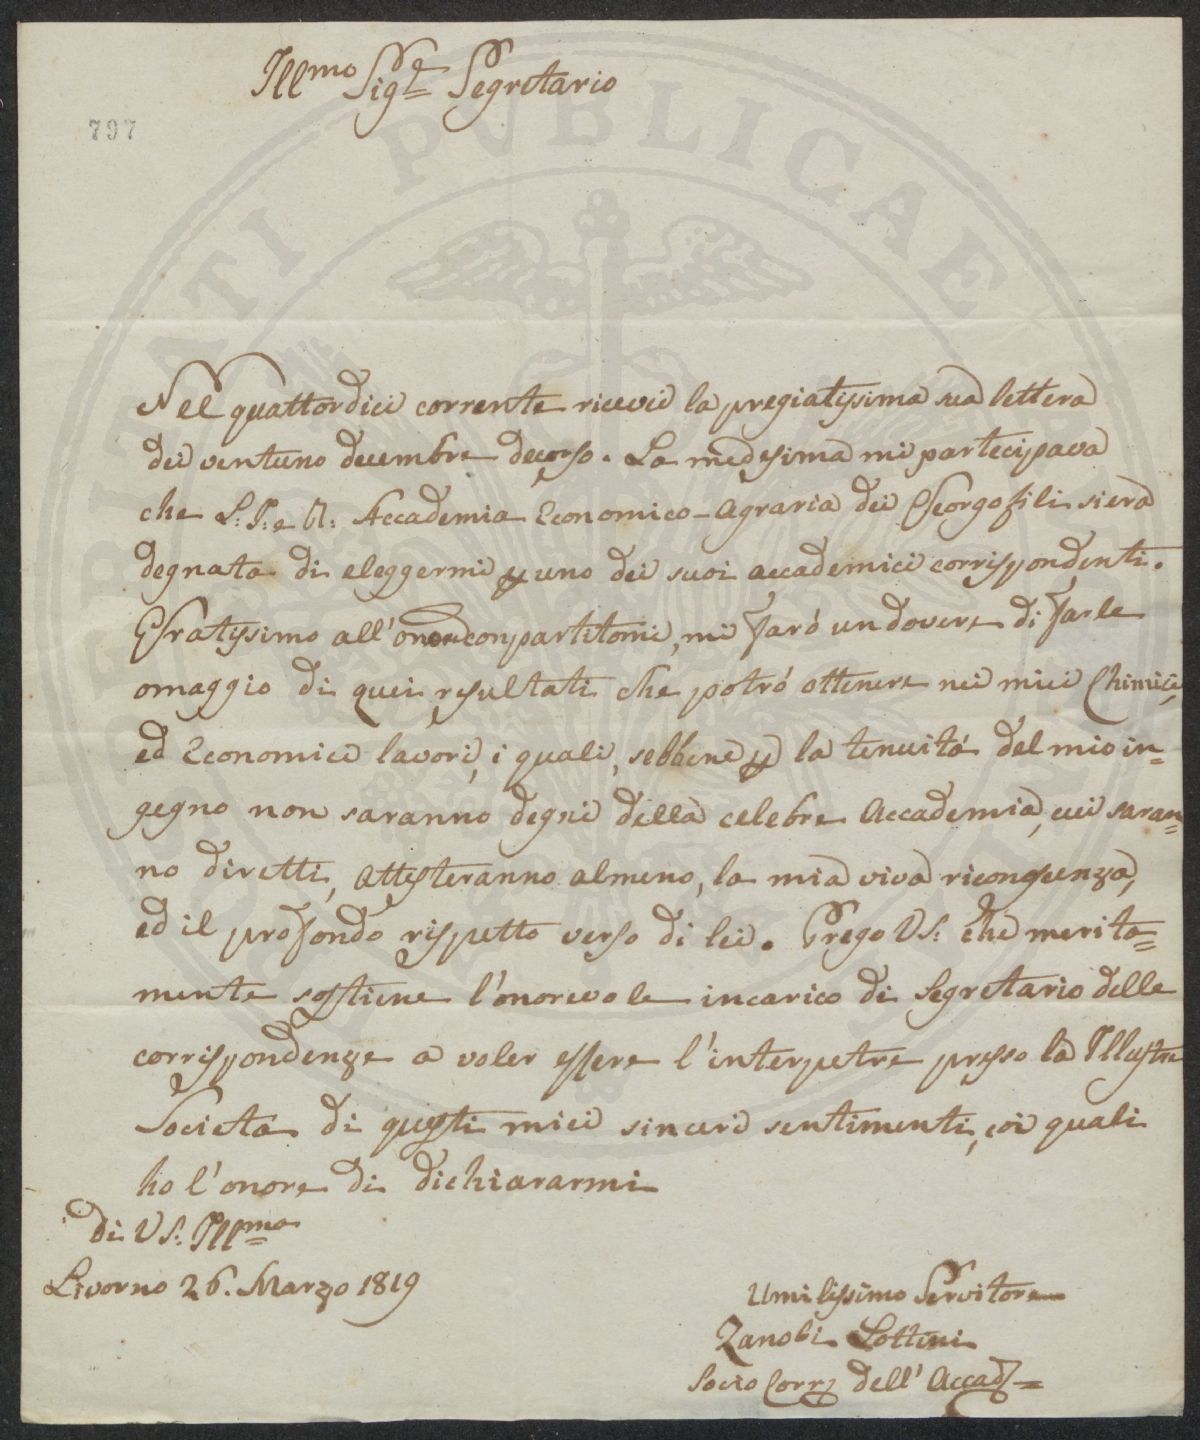 Illmo Sigr. Segretario
797
Nel quattordici corrente ricevei la pregiatissima sua lettera
dei ventuno decembre decorso. La medesima mi partecipava
che L: I: e R: Accademia Economico-Agraria dei Georgofili si era
degnata di eleggermi p uno dei suoi accademici corrispondenti.
Gratissimo all'onore conpartitomi, mi farò un dovere di farle
omaggio di quei resultati che potrò ottenere nei miei Chimici,
ed Economici lavori, i quali, sebbene p la tenuità del mio in=
gegno non saranno degni della celebre Accademia, cui saran=
no diretti, attesteranno almeno, la mia viva riconoscenza,
ed il profondo rispetto verso di lei. Prego VS: che merita=
mente sostiene l'onorevole incarico di Segretario delle
corrispondenze a voler essere l'interpetre presso la Illustre
Società di questi miei sinceri sentimenti, coi quali
ho l'onore di dichiararmi
Di VS: Illma
Livorno 26. Marzo 1819
Umilissimo Servitore
Zanobi Lottini
Socio Corr. dell' Accad.=